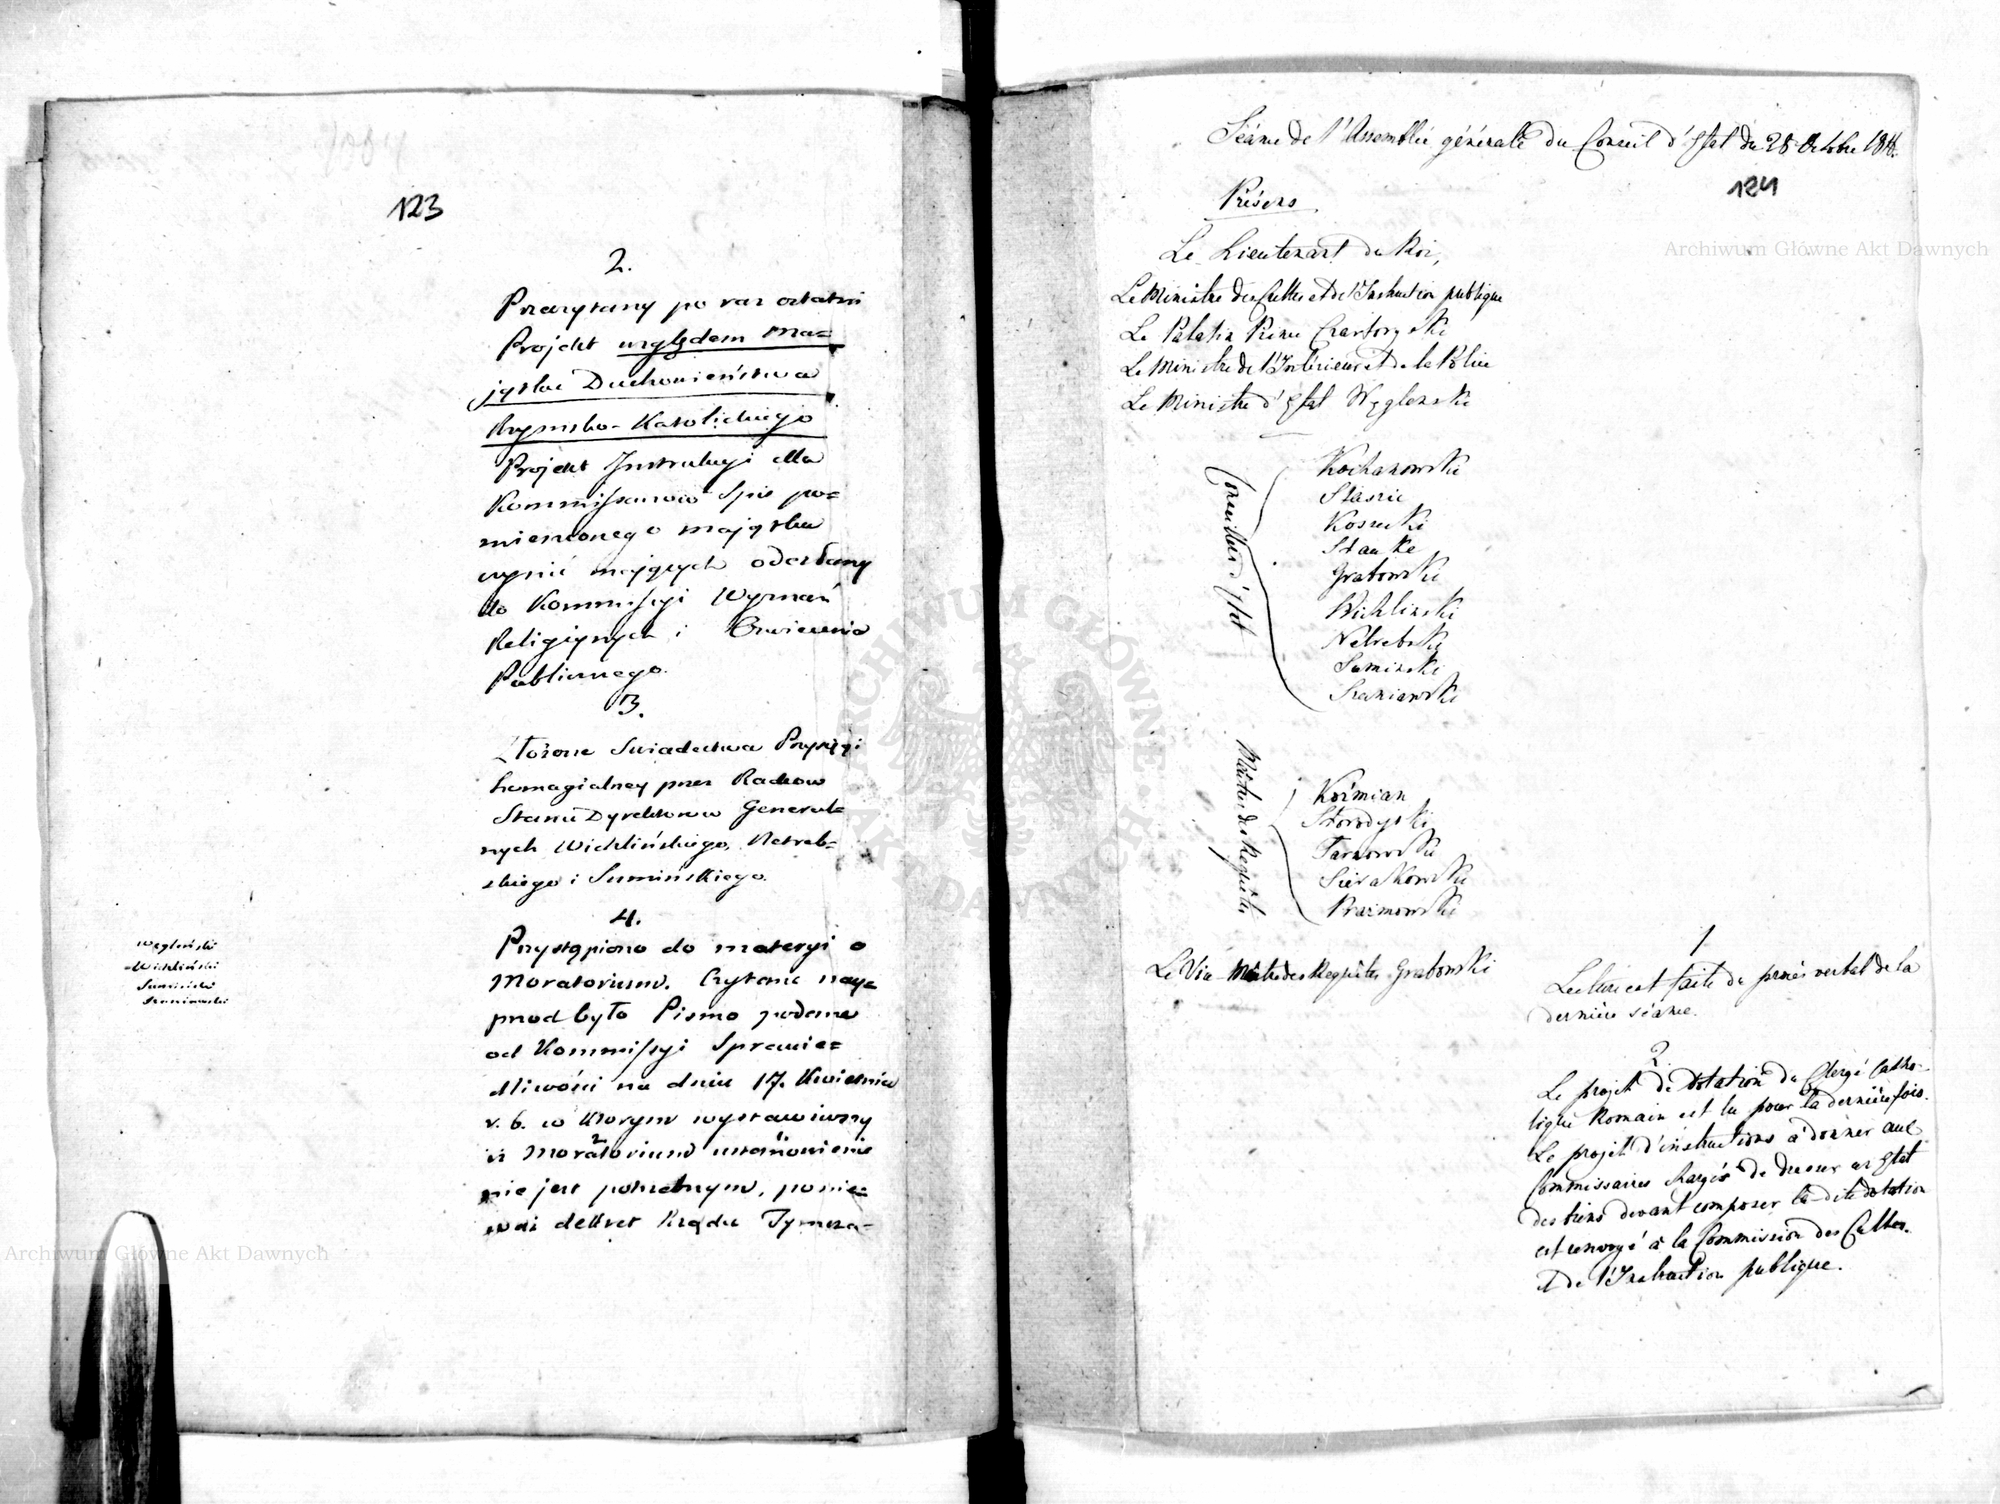 123
2.
Przeczytany po raz ostatni
Projekt względem Ma=
jątku Duchowieństwa
Rzymsko-Katolickiego
Projekt Instrukcyi dla
Kommissarzów Spis po=
mienionego majątku
czynić mających odesłany
do Kommissyi Wyznań
Religiynych i Oświecenia
Publicznego.
3.
Złożone Swiadectwa Przysięgi
homagialney przez Radców
Stanu Dyrektorów General=
nych Wichlińskiego, Netreb=
skiego i Sumińskiego.
4.
Przystąpiono do materyi o
Moratorium. Czytane nay=
przod było Pismo podane
od Kommissyi Sprawie=
dliwości na dniu 17. Kwietnia
r. b. w którym wystawiwszy
iż Moratorium ustanowienie
nie jest potrzebnym, ponie=
waż dekret Rządu Tymcza-
Węgleński
Wichliński
Sumiński
Szaniawski
Séance de l'Assemblée générale du Conseil d'Etat du 28 Octobre 1816.
124
Présens
Le Lieutenant du Roi,
Le Ministre des Cultes et de l'Instruction publique
Le Palatin Prince Czartoryski
Le Ministre de l'Intérieur et de la Police
Le Ministre d'Etat Węgleński
Conseillers d'Etat
Kochanowski
Staszic
Kossecki
Stanke
Grabowski
Wichlinski
Netrebski
Suminski
Szaniawski
Maîtres des Requêtes
Koźmian
Starodyski
Tarnowski
Sierakowski
Prazmowski
Le Vice-Maître des Requêtes Grabowski
1
Lecture est faite du procès verbal de la
dernière séance.
2
Le projet de dotation du Clergé Catho-
lique Romain est lu pour la dernière fois.
Le projet d'instructions à donner aux
Commissaires chargés de dresser un Etat
des biens devant composer la dite dotation
est renvoyé à la Commission des Cultes
et de l'Instruction publique.
Archiwum Główne Akt Dawnych
Archiwum Główne Akt Dawnych
ARCHIWUM GŁÓWNE AKT DAWNYCH